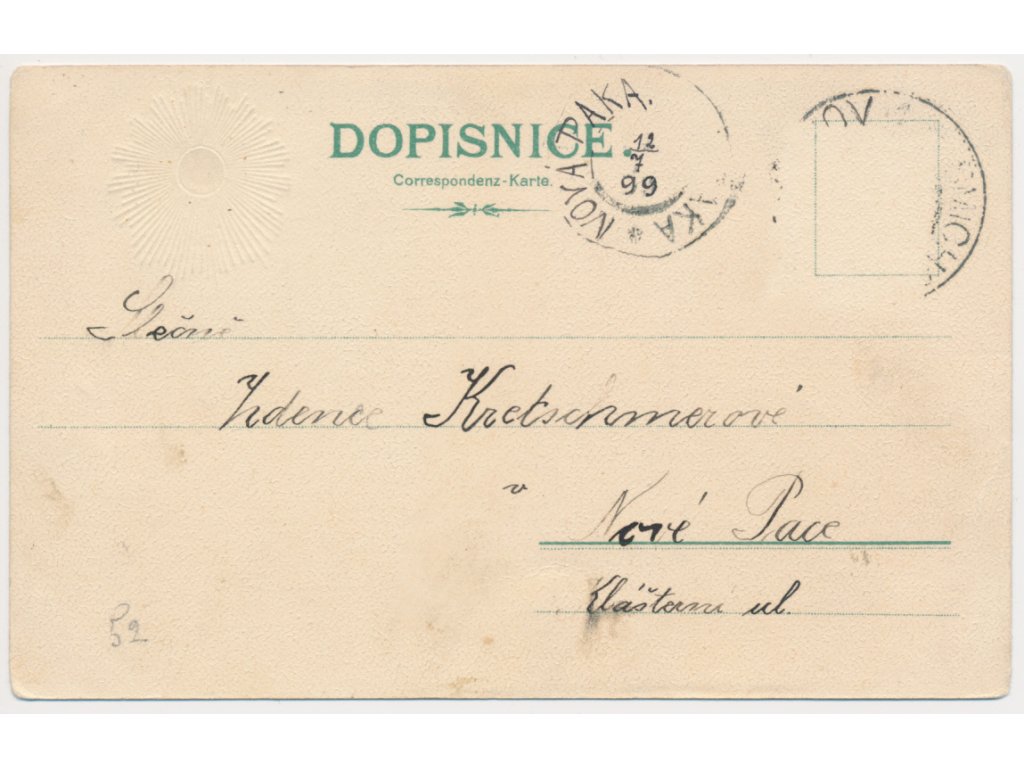 DOPISNICE.
Correspondenz-Karte.
NOVÁ PAKA.
12
7
99
PAKA
Slečně
Zdence Kretschmerové
v
Nové Pace
Klášterní ul.
52